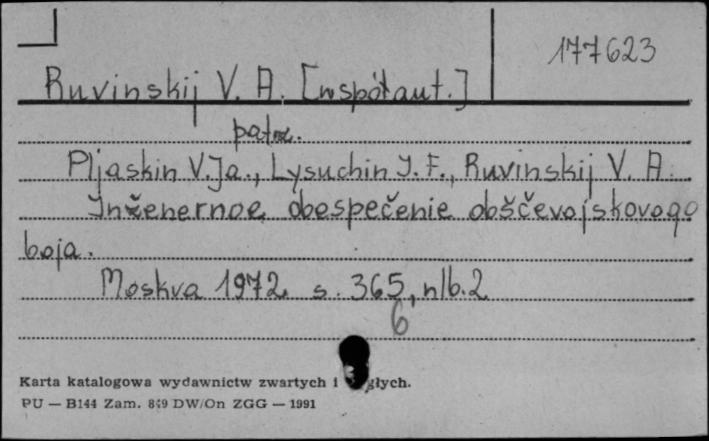 177623
Ruvinskij V. A. [współaut.]
patrz.
Pljaskin V.Ja., Lysuchin I. F., Ruvinskij V. A.
Inženernoe obespečenie obščevojskovogo
boja.
Moskva 1972 s. 365, nlb. 2
6
Karta katalogowa wydawnictw zwartych i głych.
PU — B144 Zam. 849 DW/On ZGG — 1991